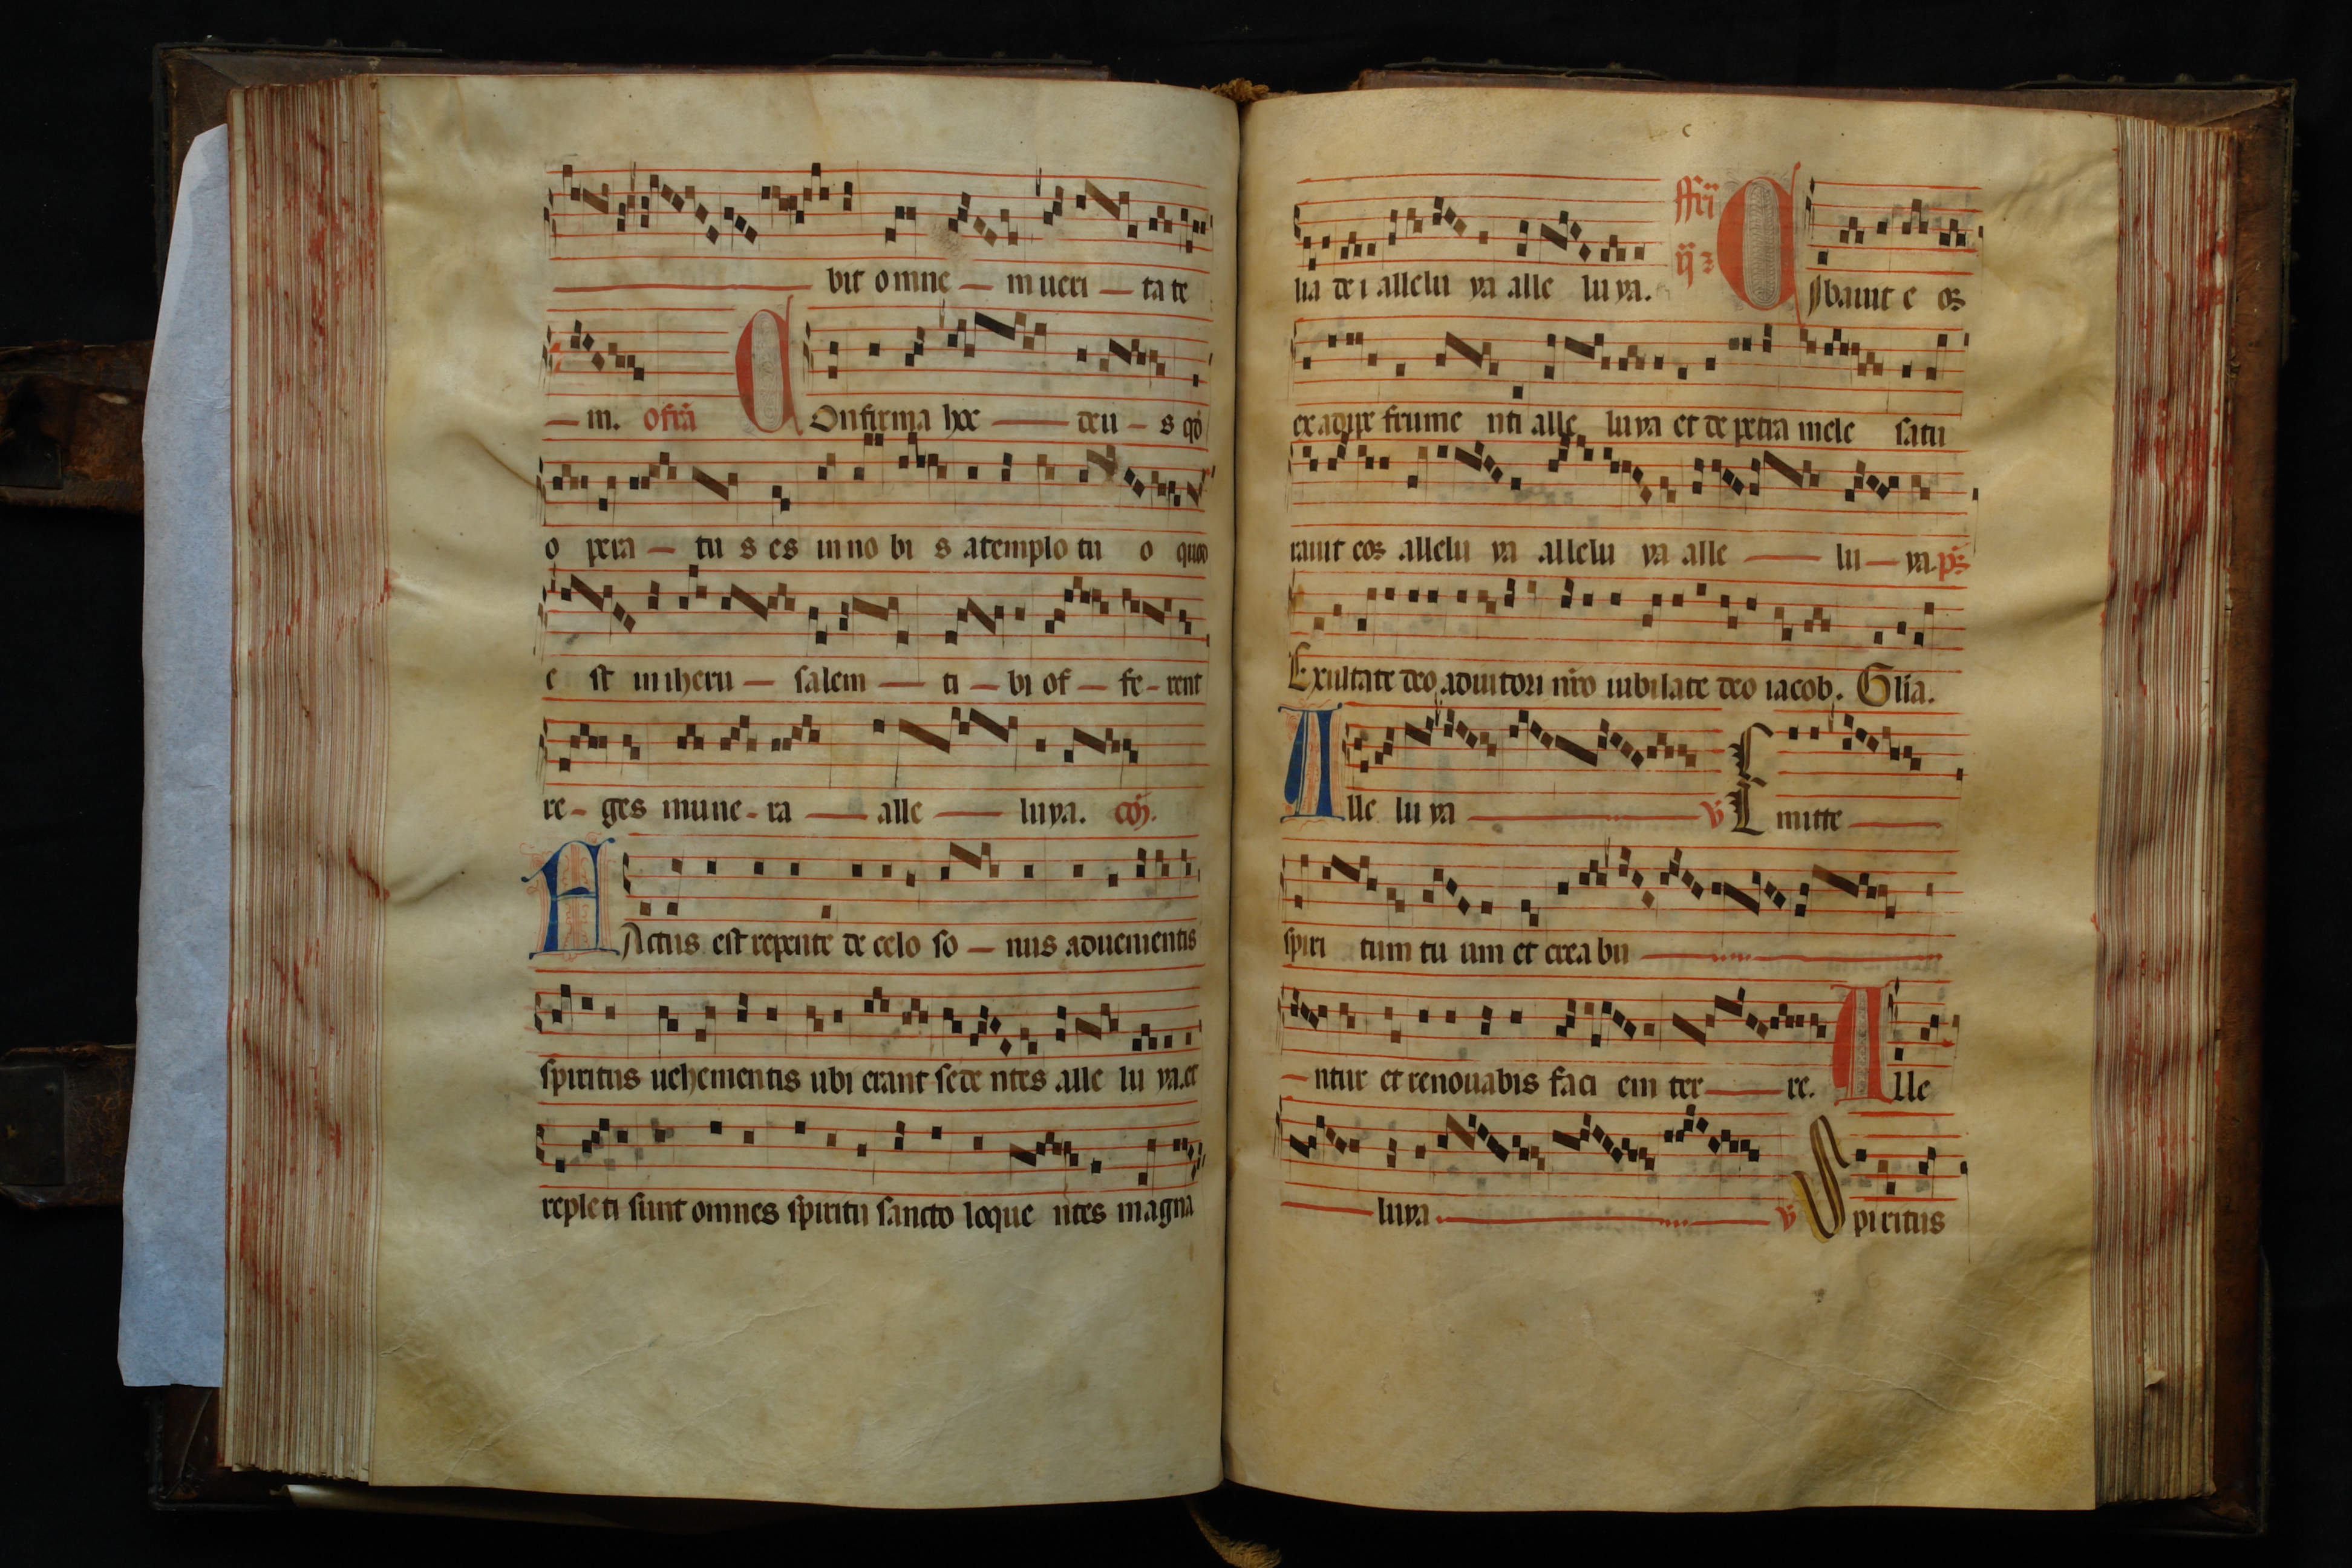 bit omne — in ueri — ta te
— m. ofra COnfirma hoc — deu — s qd
o pera — tu s es in no bi s a templo tu o quod
e st in iheru — salem — ti — bi of — fe — rent
re — ges mune — ra — alle — luya. co
FActus est repente de celo so — nus aduenientis
spiritus uehementis ubi erant sede ntes alle lu ya. et
repleti sunt omnes spiritu sancto loque ntes magna
lia de i allelu ya alle lu ya. ffr ij CIbauit e os
ex adipe frume nti alle luya et de petra melle satu
rauit eos allelu ya allelu ya alle — lu — ya. ps
Exultate deo adiutori nro iubilate deo iacob. Glia.
Alle lu ya — v E mitte —
spiri tum tu um et crea bu —
— ntur et renouabis faci em ter — re. Alle
— luya. — v Spiritus